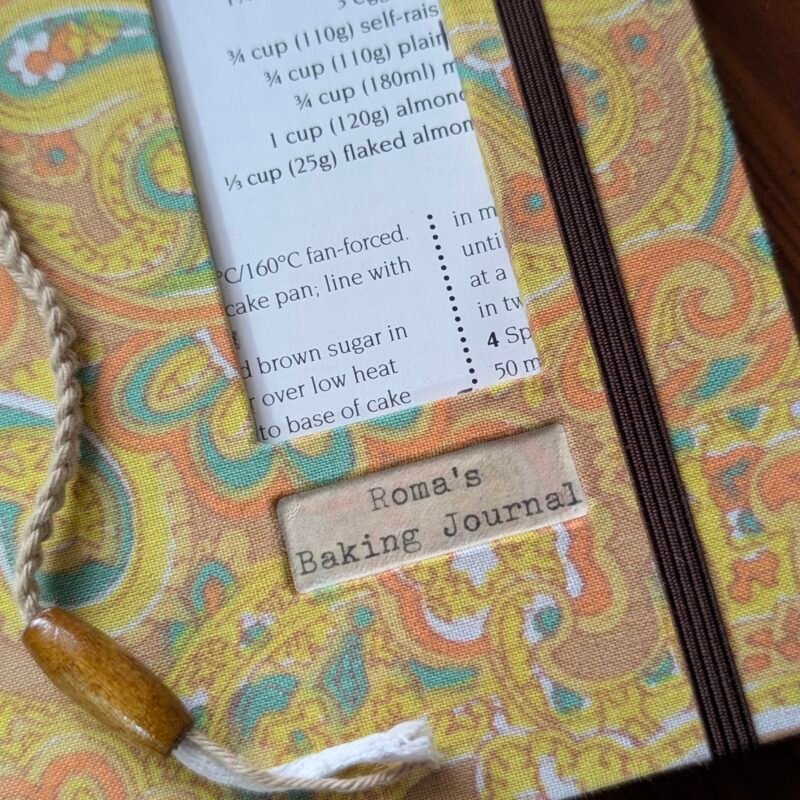 ¾ cup (110g) self-rais
¾ cup (110g) plain
¾ cup (180ml) m
1 cup (120g) almond
⅓ cup (25g) flaked almon
°C/160°C fan-forced.
cake pan; line with
d brown sugar in
r over low heat
to base of cake
in m
until
at a
in tw
4 Sp
50 m
Roma's
Baking Journal